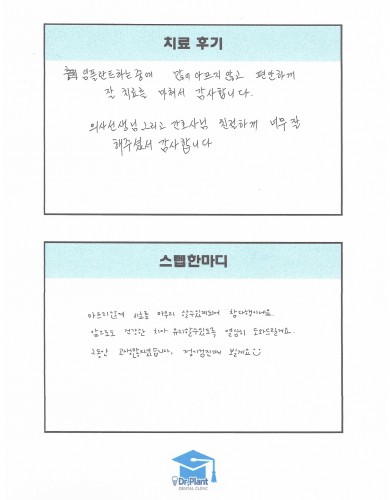 치료 후기
임플란트하는중에 많이 아프지 않고 편안하게
잘 치료를 마쳐서 감사합니다.
의사선생님 그리고 간호사님 친절하게 너무 잘
해주셔서 감사합니다
스텝한마디
아프지않게 치료를 마무리 할수있게되어 참다행이네요.
앞으로도 건강한 치아 유지할수있도록 열심히 도와드릴게요.
그동안 고생많으셨습니다. 정기검진때 뵐게요
Dr.Plant
DENTAL CLINIC